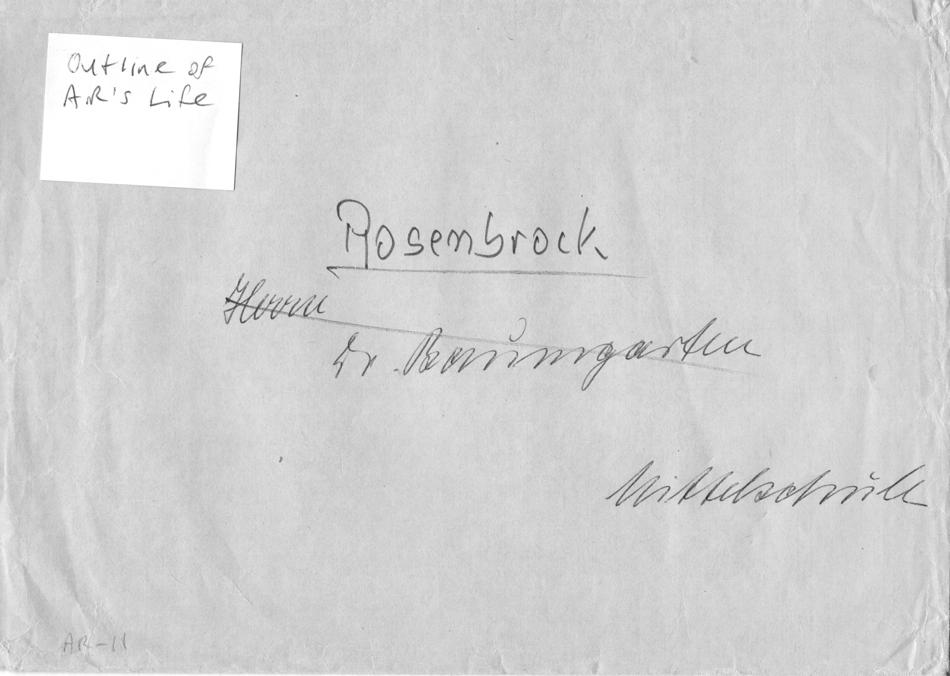 Outline of
A.R's Life
Rosenbrock
Herrn
Dr. Baumgarten
Mittelschule
AR-11